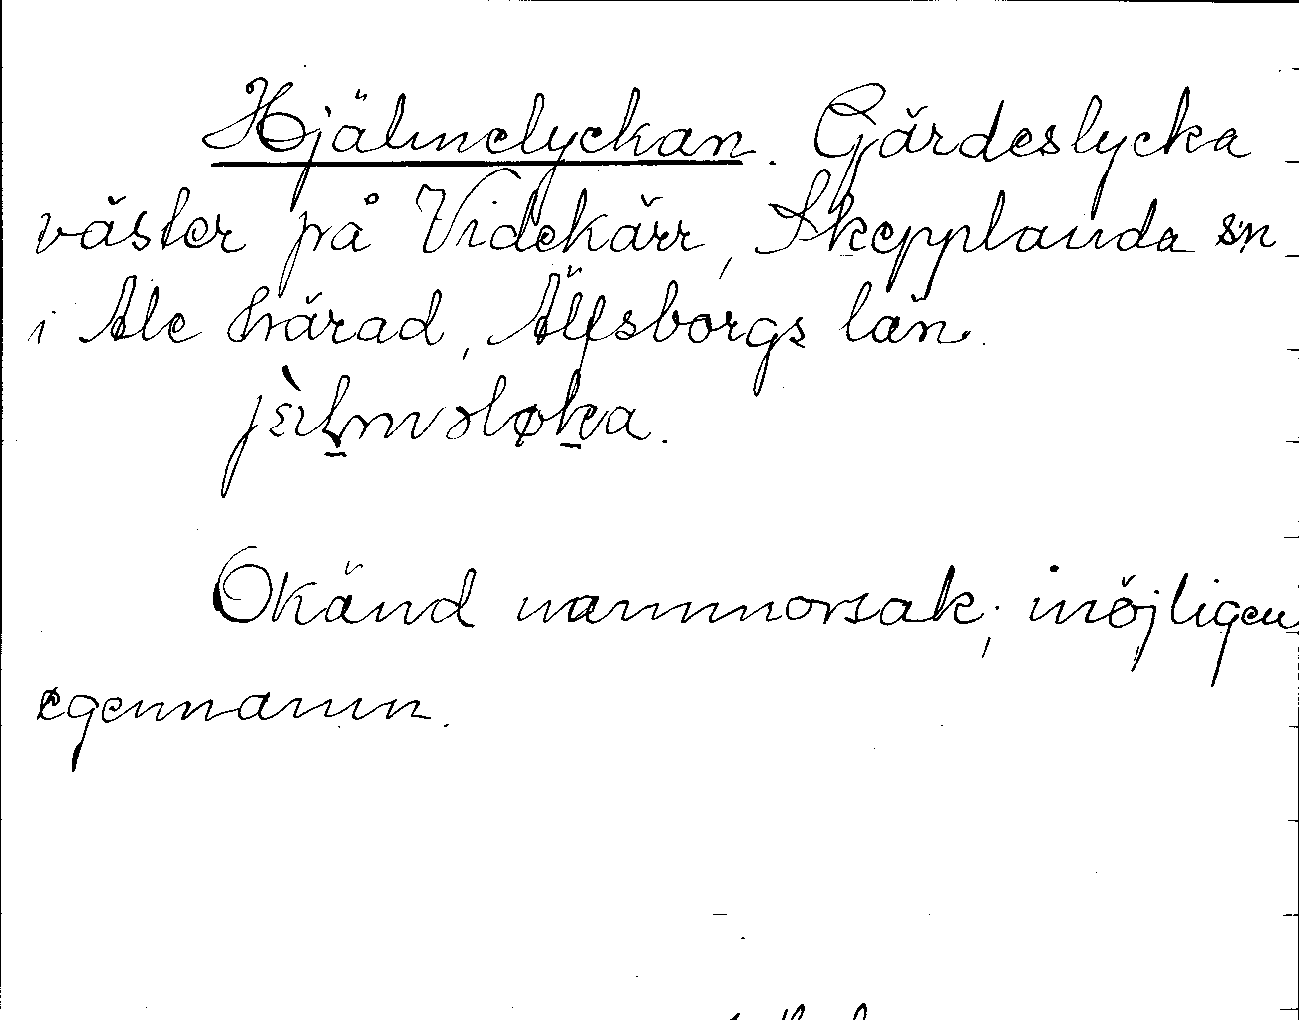 Hjälmelyckan. Gärdeslycka
väster på Videkärr, Skepplanda sn
i Ale härad, Älfsborgs län.
jɛ̀lməløka.
Okänd namnorsak; möjligen
egennamn.